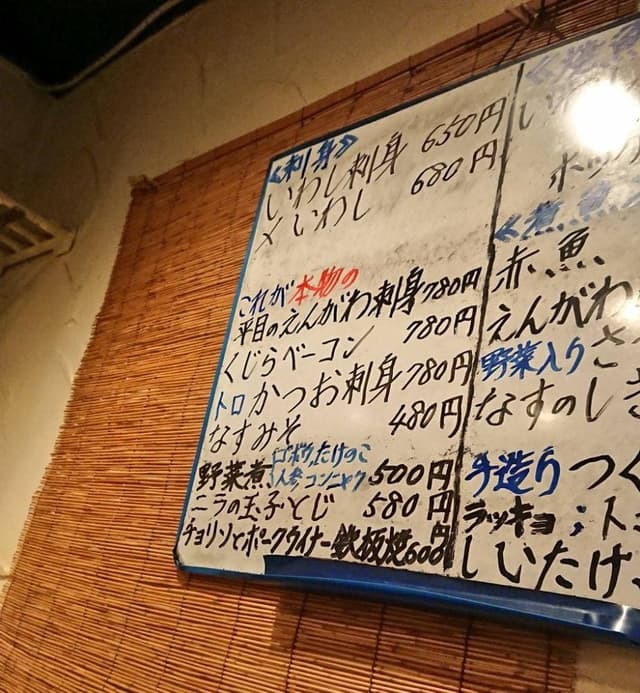 《刺身》
いわし刺身 650円
〆いわし 680円
これが本物の
平目のえんがわ刺身 780円
くじらベーコン 780円
トロかつお刺身 780円
なすみそ 480円
野菜煮 ゴボウ、たけのこ
人参コンニャク 500円
ニラの玉子とじ 580円
チョリソとポークウィナー鉄板焼 600円
い
ホッケ
《煮魚
赤魚
えんがわ
野菜入り さ
なすのしぎ
手造り つく
ラッキョ；ト
しいたけ